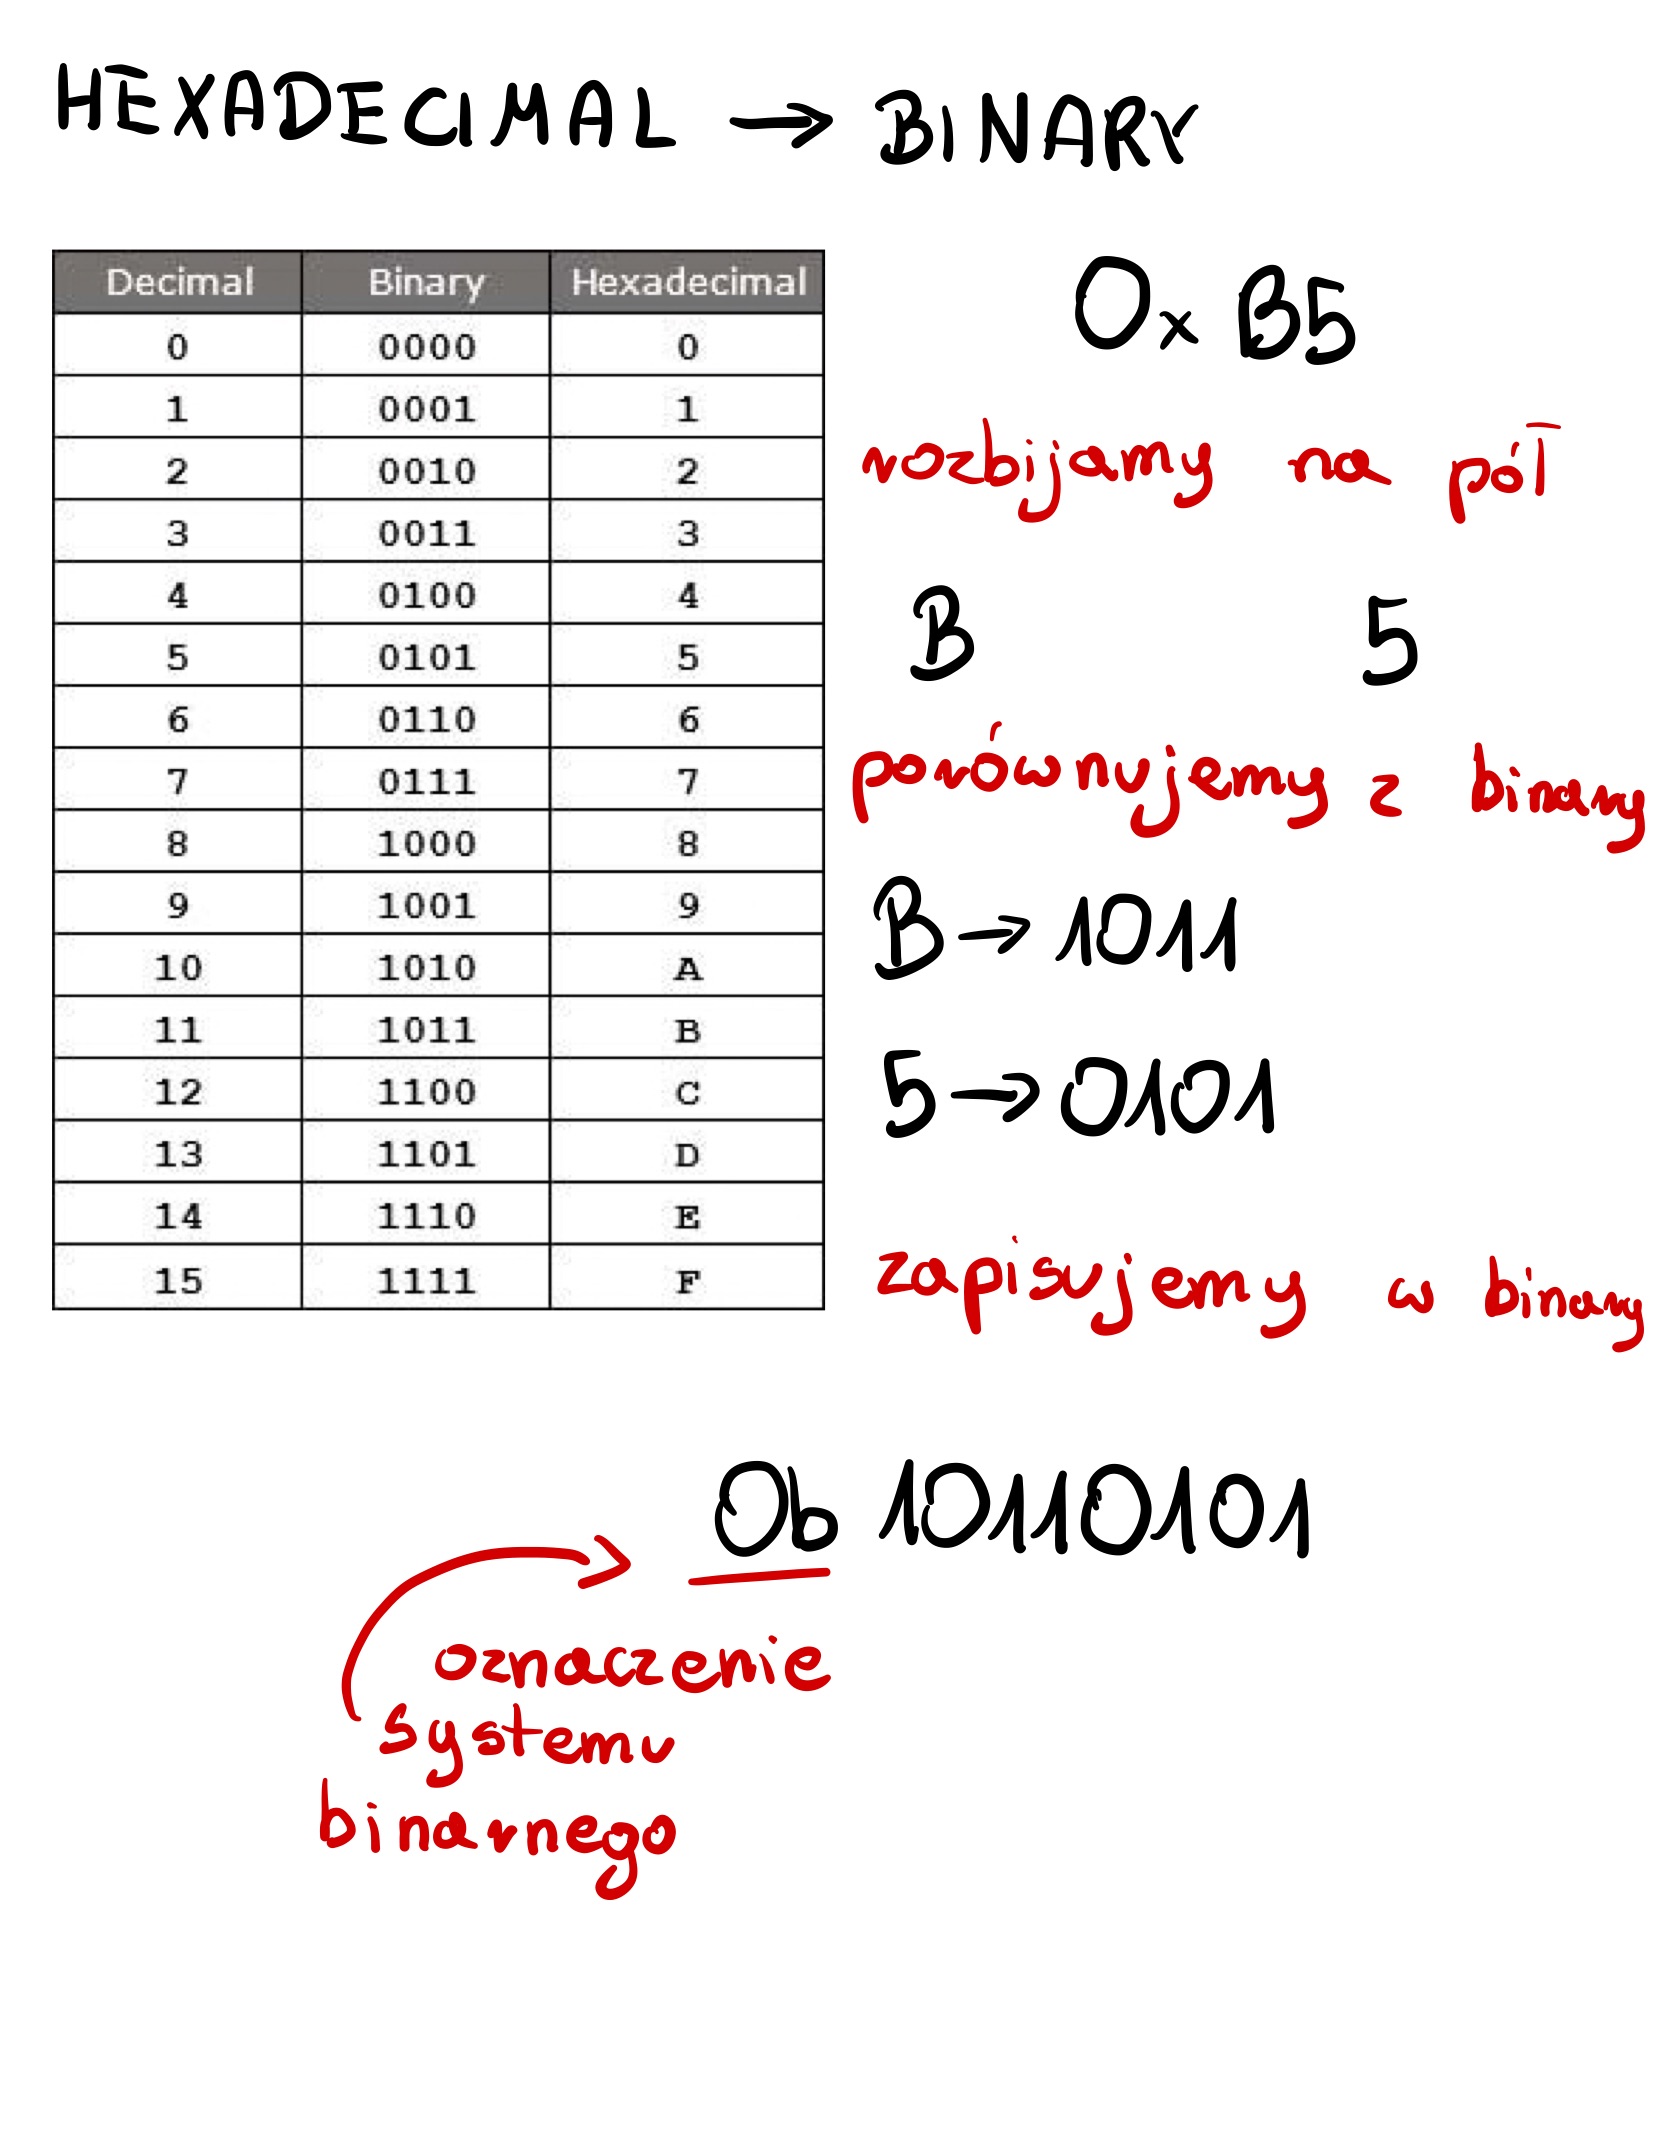 HEXADECIMAL → BINARY
Decimal Binary Hexadecimal
0 0000 0
1 0001 1
2 0010 2
3 0011 3
4 0100 4
5 0101 5
6 0110 6
7 0111 7
8 1000 8
9 1001 9
10 1010 A
11 1011 B
12 1100 C
13 1101 D
14 1110 E
15 1111 F
0x B5
rozbijamy na pół
B 5
porównujemy z binary
B → 1011
5 → 0101
zapisujemy w binary
0b 10110101
oznaczenie
systemu
binarnego